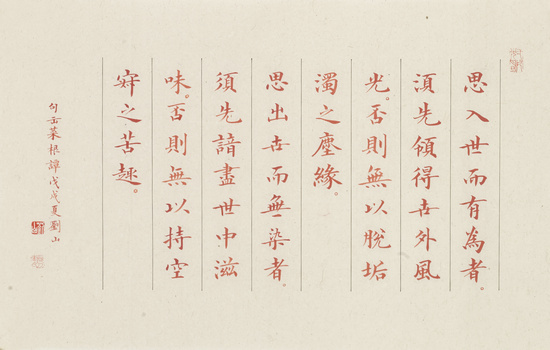 思入世而有為者。
須先領得世外風
光。否則無以脫垢
濁之塵緣。
思出世而無染者。
須先諳盡世中滋
味。否則無以持空
寂之苦趣。
句菜根譚戊戌夏劉山